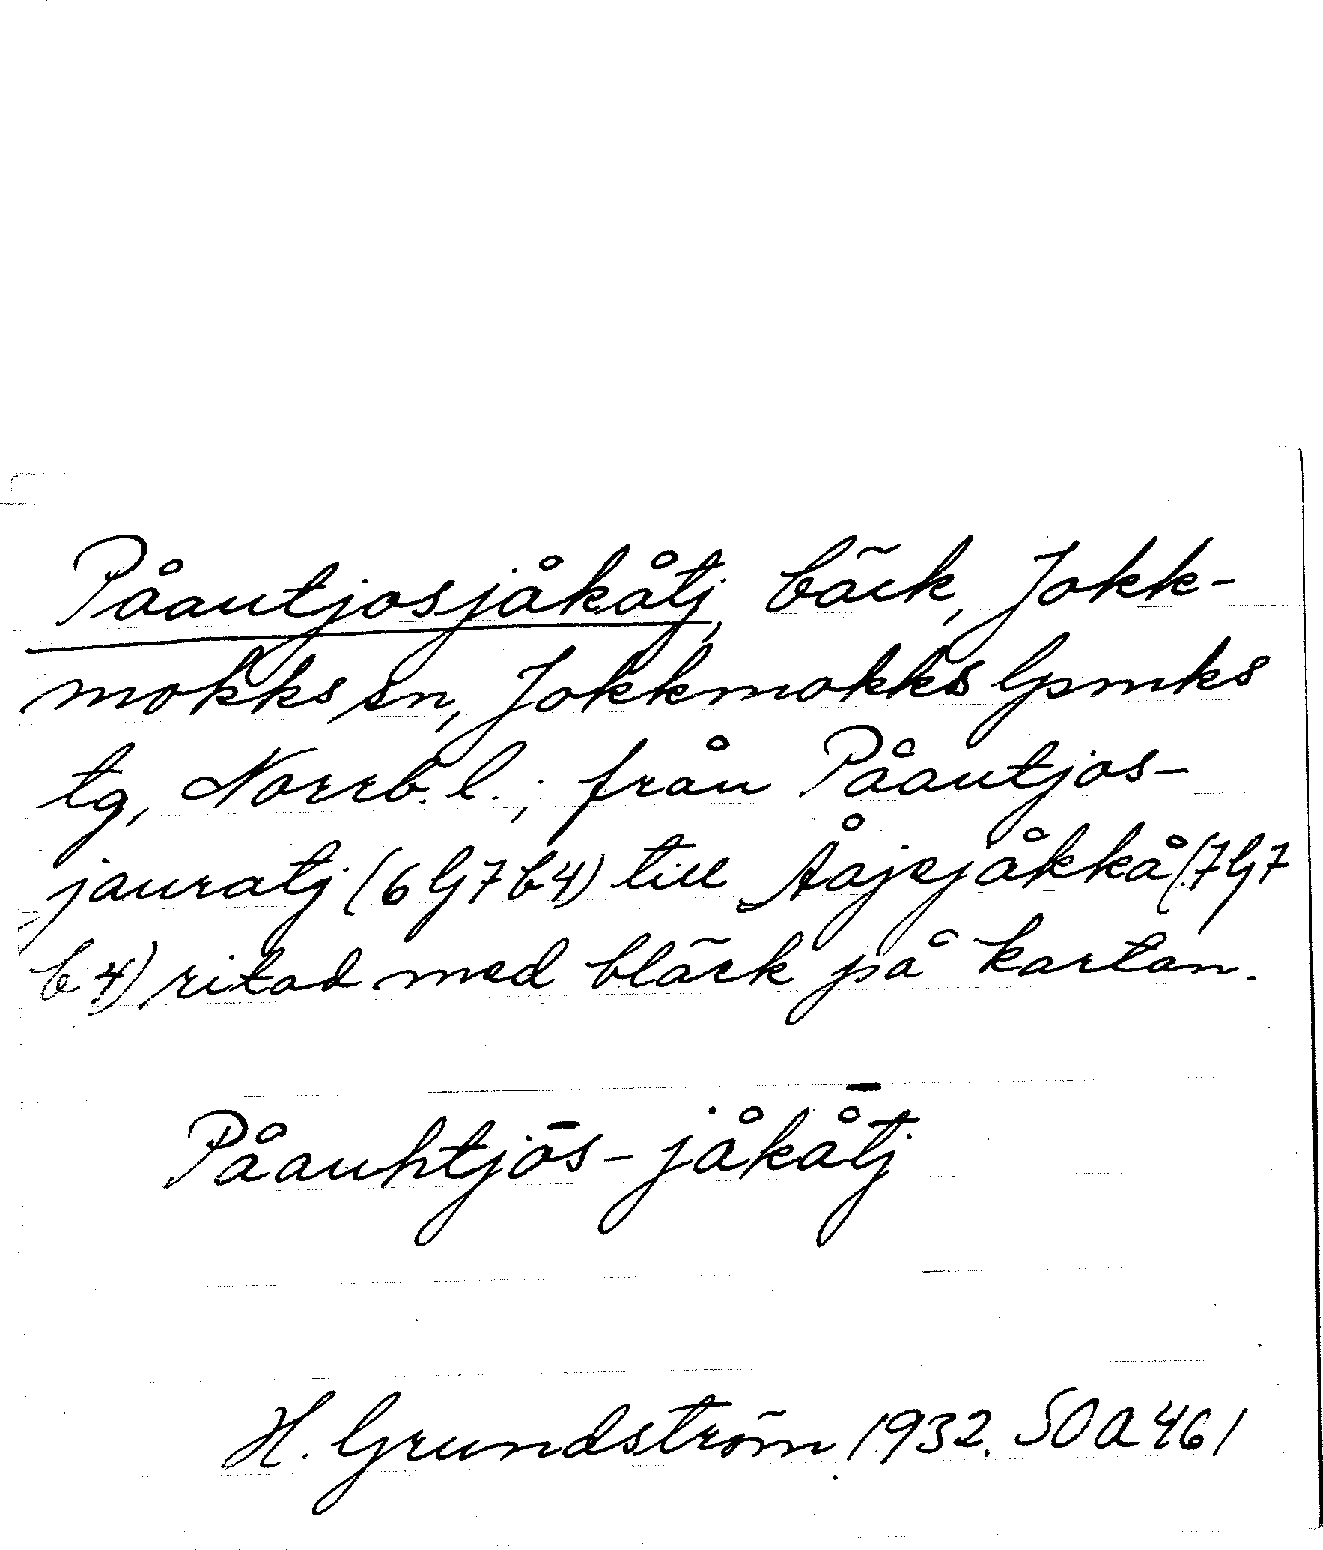 Påautjosjåkåtj, bäck, Jokk-
mokks sn, Jokkmokks lpmks
tg, Norrb. l.; från Påautjos-
jauratj (6 G 7 b 4) till Åajejåkkå (7 G 7
b 4) ritad med bläck på kartan.
Påauhtjōs-jåkå̄tj
H. Grundström 1932. SOA 461